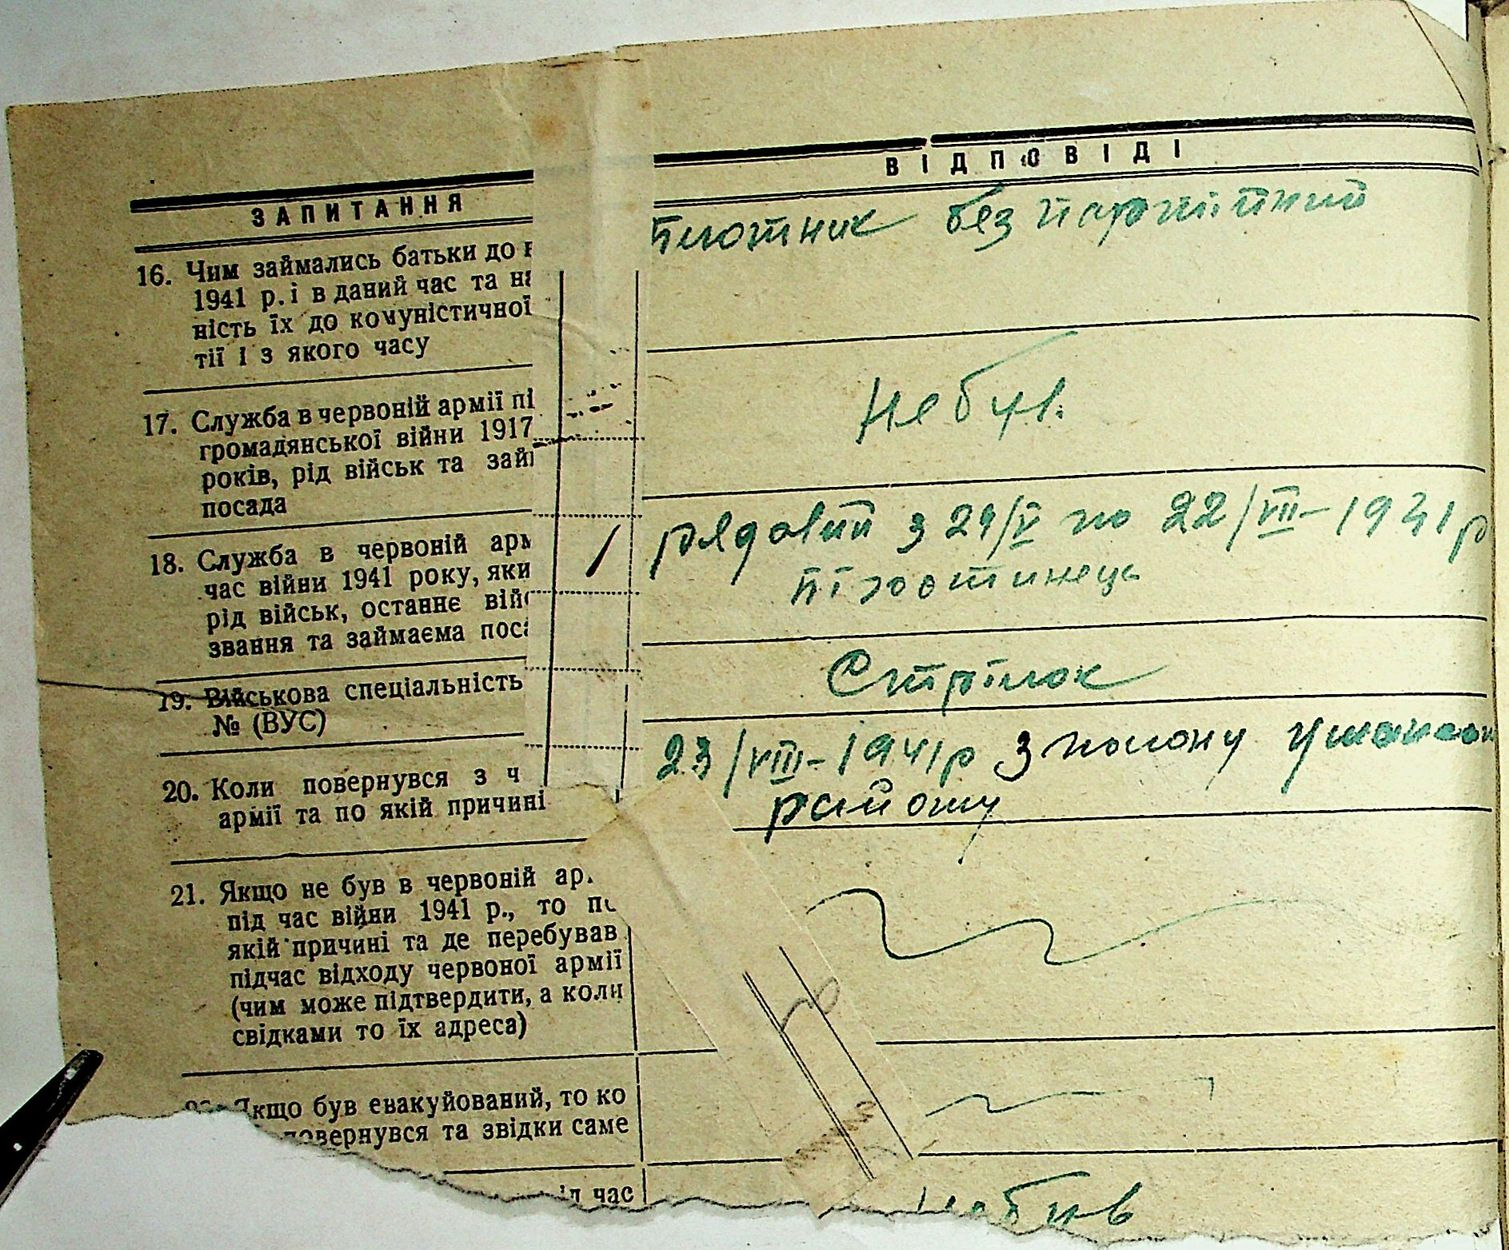 ЗАПИТАННЯ
ВІДПОВІДІ
16. Чим займались батьки до в
1941 р. і в даний час та на
ність їх до комуністичної
тії і з якого часу
плотник без партійний
17. Служба в червоній армії пі
громадянської війни 1917
років, рід військ та зай
посада
не був.
18. Служба в червоній арм
час війни 1941 року, яки
рід військ, останнє вій
звання та займаєма поса
рядовий з 24/V по 22/VII-1941 р
19. Військова спеціальність
№ (ВУС)
Стрілок
20. Коли повернувся з ч
армії та по якій причині
23/VIII-1941 р з полону
району
21. Якщо не був в червоній ар.
під час війни 1941 р., то по
якій причині та де перебував
підчас відходу червоної армії
(чим може підтвердити, а коли
свідками то їх адреса)
Якщо був евакуйований, то ко
повернувся та звідки саме
час
не був